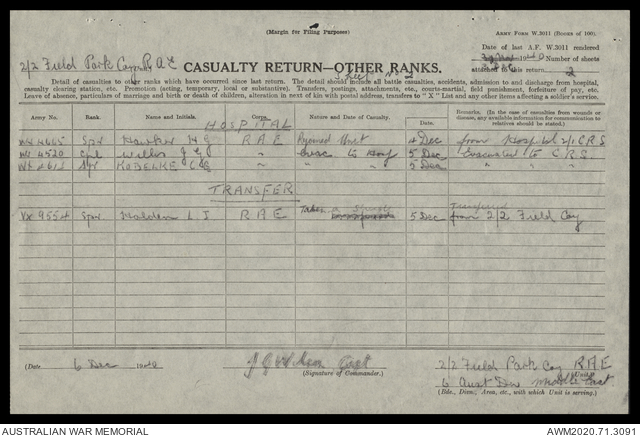 (Margin for Filing Purposes)
ARMY FORM W.3011 (BOOKS OF 100).
Date of last A.F. W.3011 rendered
2/2 Field Park Coy R A E
CASUALTY RETURN—OTHER RANKS.
Sheet No 2
Number of sheets
attached to this return 2
Detail of casualties to other ranks which have occurred since last return. The detail should include all battle casualties, accidents, admission to and discharge from hospital,
casualty clearing station, etc. Promotion (acting, temporary, local or substantive). Transfers, postings, attachments, etc., courts-martial, field punishment, forfeiture of pay, etc.
Leave of absence, particulars of marriage and birth or death of children, alteration in next of kin with postal address, transfers to "X" List and any other items affecting a soldier's service.
Army No. Rank. Name and Initials. Corps. Nature and Date of Casualty. Date. Remarks. (In the case of casualties from wounds or disease, any available information for communication to relatives should be stated.)
HOSPITAL
4665 Spr Hawker H G R A E Rejoined Unit 4 Dec from Hospital 2/1 C.R.S
4520 Cpl Wells J E " Evac to Hosp 5 Dec Evacuated to C.R.S.
Spr KOBELKE C " " 5 Dec " "
TRANSFER
VX 9554 Spr Holden L J R A E Taken on Strength 5 Dec Transferred from 2/2 Field Coy
(Date 6 Dec 1940
(Signature of Commander.)
2/2 Field Park Coy R A E
Unit
6 Aust Div Middle East
(Bde., Divn., Area, etc., with which Unit is serving.)
AUSTRALIAN WAR MEMORIAL
AWM2020.71.3091